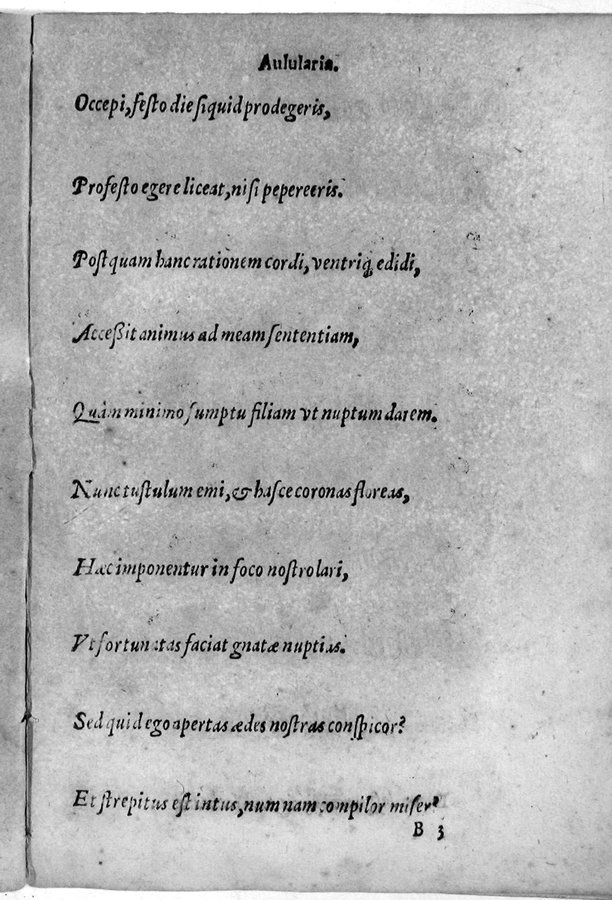 Aulularia.
Occepi, festo die siquid prodegeris,
Profesto egere liceat, nisi pepereeris.
Postquam hanc rationem cordi, ventriq; edidi,
Accessit animus ad meam sententiam,
Quàm minimo sumptu filiam vt nuptum darem.
Nunc tustulum emi, & hasce coronas floreas,
Hæc imponentur in foco nostro lari,
Vt fortunatas faciat gnatæ nuptias.
Sed quid ego apertas ædes nostras conspicor?
Et strepitus est intus, num nam compilor miser?
B 3